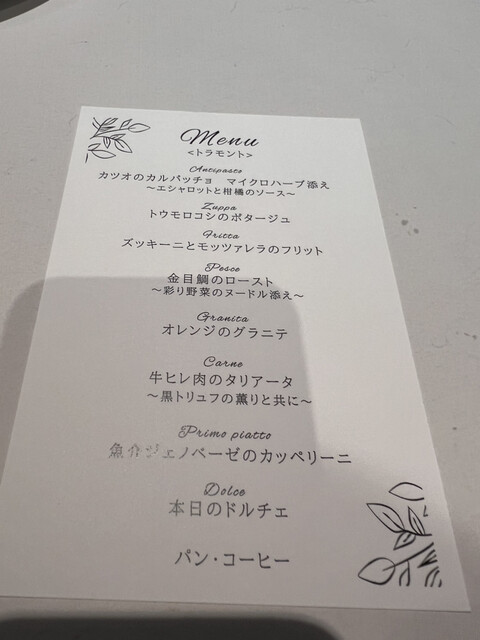 Menu
<トラモント>
Antipasto
カツオのカルパッチョ　マイクロハーブ添え
～エシャロットと柑橘のソース～
Zuppa
トウモロコシのポタージュ
Fritta
ズッキーニとモッツァレラのフリット
Pesce
金目鯛のロースト
～彩り野菜のヌードル添え～
Granita
オレンジのグラニテ
Carne
牛ヒレ肉のタリアータ
～黒トリュフの薫りと共に～
Primo piatto
魚介ジェノベーゼのカッペリーニ
Dolce
本日のドルチェ
パン・コーヒー